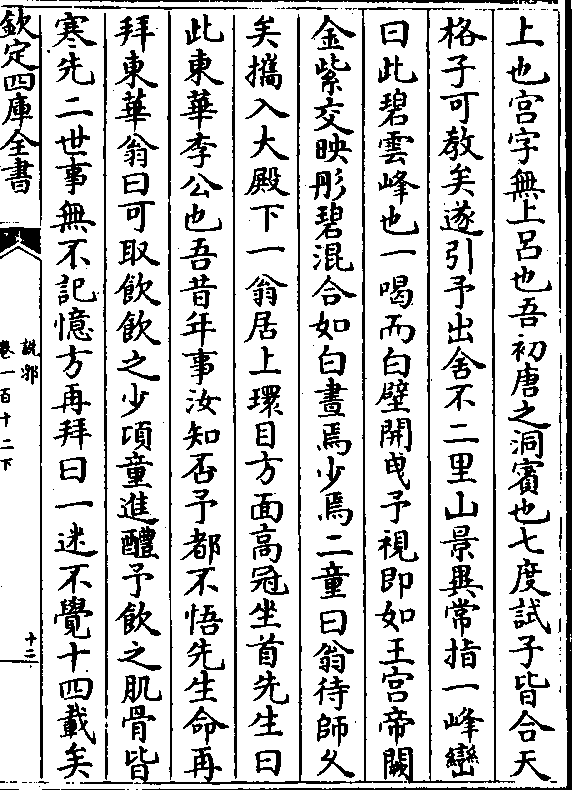 上也宫字無上呂也吾初唐之洞賓也七度試子皆合天
格子可教矣遂引予出舍不二里山景異常指一峰巒
曰此碧雲峰也一喝而白壁開曳予視即如王宫帝闕
金紫交映彤碧混合如白晝焉少焉二童曰翁待師乆
矣攜入大殿下一翁居上環目方面高冠坐首先生曰
此東華李公也吾昔年事汝知否予都不悟先生命再
拜東華翁曰可取飲飲之少頃童進醴予飲之肌骨皆
寒先二世事無不記憶方再拜曰一迷不覺十四載矣
欽定四庫全書
說郛
卷一百十二下
十二